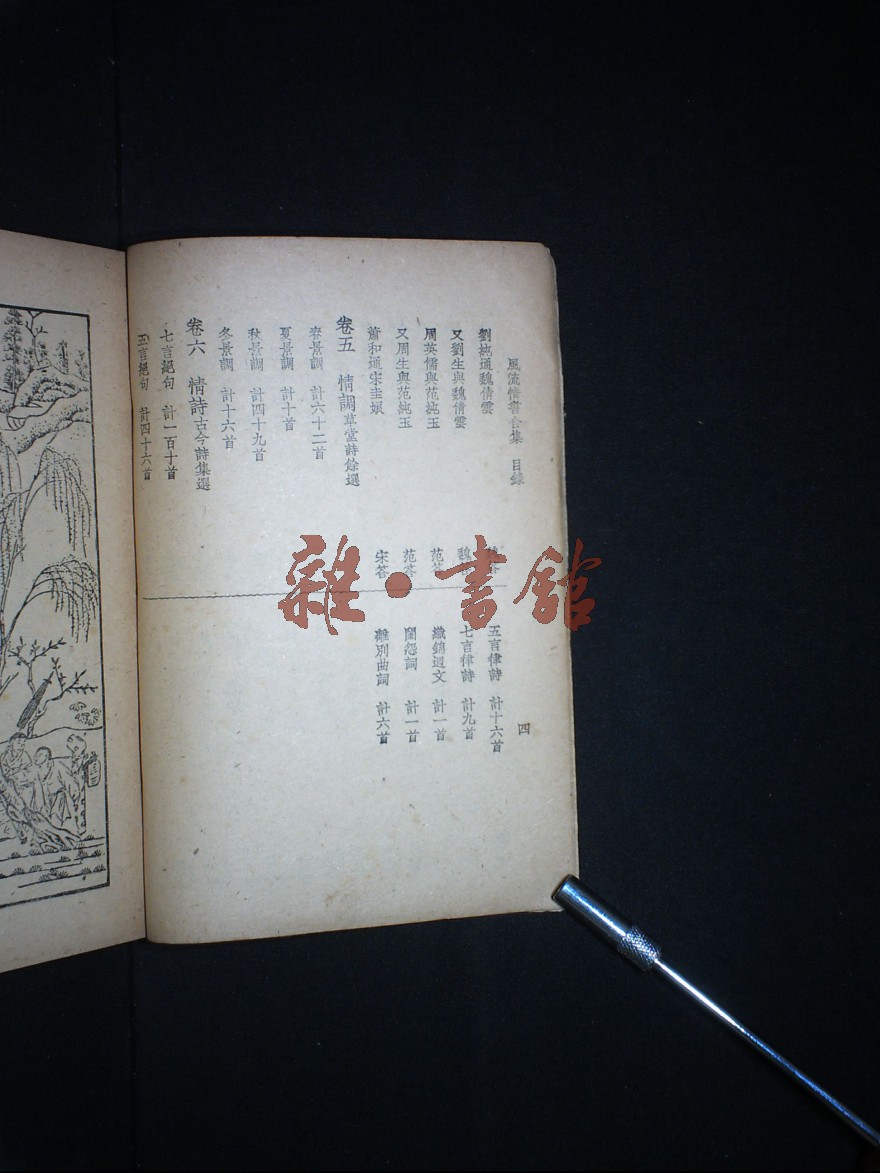 風流情書合集 目錄 四
劉純通魏倩雲 魏答
又劉生與魏倩雲
周英儒與范純玉 范答
又周生與范純玉 范答
蕭和通宋圭娘 宋答
卷五 情調草堂詩餘選
春景調 計六十二首
夏景調 計十首
秋景調 計四十九首
冬景調 計十六首
卷六 情詩古今詩集選
七言絕句 計一百十首
五言絕句 計四十六首
五言律詩 計十六首
七言律詩 計九首
織錦迴文 計一首
閨怨詞 計一首
離別曲詞 計六首
雜·書館